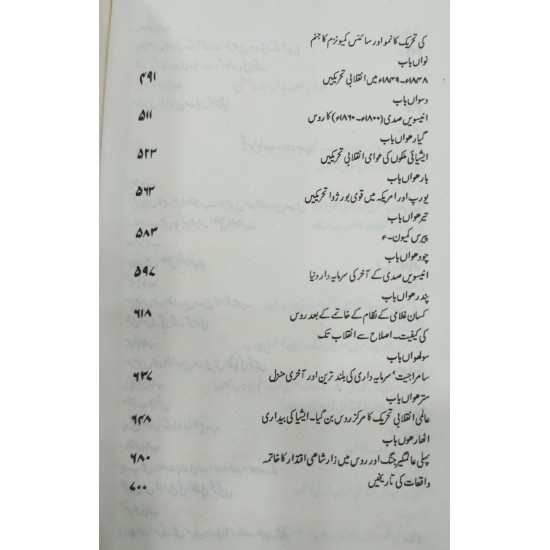 کی تحریک کا نمو اور سائنس کمیونزم کا جنم
نواں باب
۱۸۴۸ء۔۱۸۴۹ء میں انقلابی تحریکیں ۴۹۱
دسواں باب
انیسویں صدی (۱۸۰۰ء۔۱۸۶۰ء) کا روس ۵۱۱
گیارھواں باب
ایشیائی ملکوں کی عوامی انقلابی تحریکیں ۵۲۳
بارھواں باب
یورپ اور امریکہ میں قومی بورژوا تحریکیں ۵۶۳
تیرھواں باب
پیرس کمیون۔ء ۵۸۳
چودھواں باب
انیسویں صدی کے آخر کی سرمایہ دار دنیا ۵۹۷
پندرھواں باب
کسان غلامی کے نظام کے خاتمے کے بعد روس ۶۱۸
کی کیفیت۔ اصلاح سے انقلاب تک
سولھواں باب
سامراجیت' سرمایہ داری کی بلند ترین اور آخری منزل ۶۳۷
سترھواں باب
عالمی انقلابی تحریک کا مرکز روس بن گیا۔ ایشیا کی بیداری ۶۴۸
اٹھارھوں باب
پہلی عالمگیر جنگ اور روس میں زار شاھی اقتدار کا خاتمہ ۶۸۰
واقعات کی تاریخیں ۷۰۰